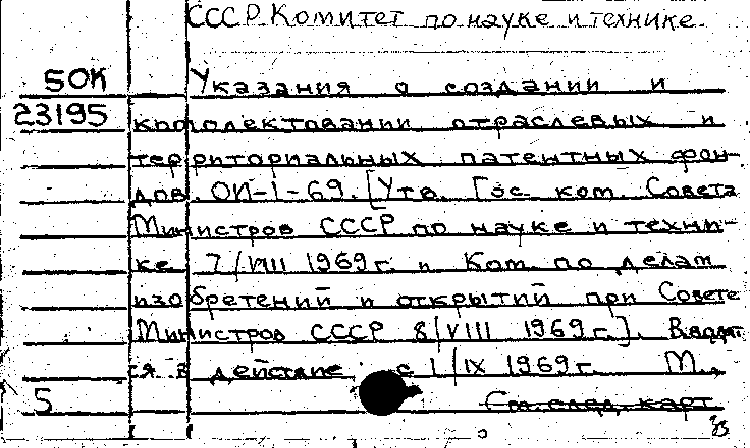 СССР. Комитет по науке и технике.
50К Указания о создании и
23195 комплектовании отраслевых и
территориальных патентных фон-
дов. ОИ-1-69. [Утв. Гос. ком. Совета
Министров СССР по науке и техни-
ке 7/VIII 1969г. и Ком. по делам
изобретений и открытий при Совете
Министров СССР 8/VIII 1969г.]. Вводит
ся в действие с 1/IX 1969г. М.,
5 См. след. карт